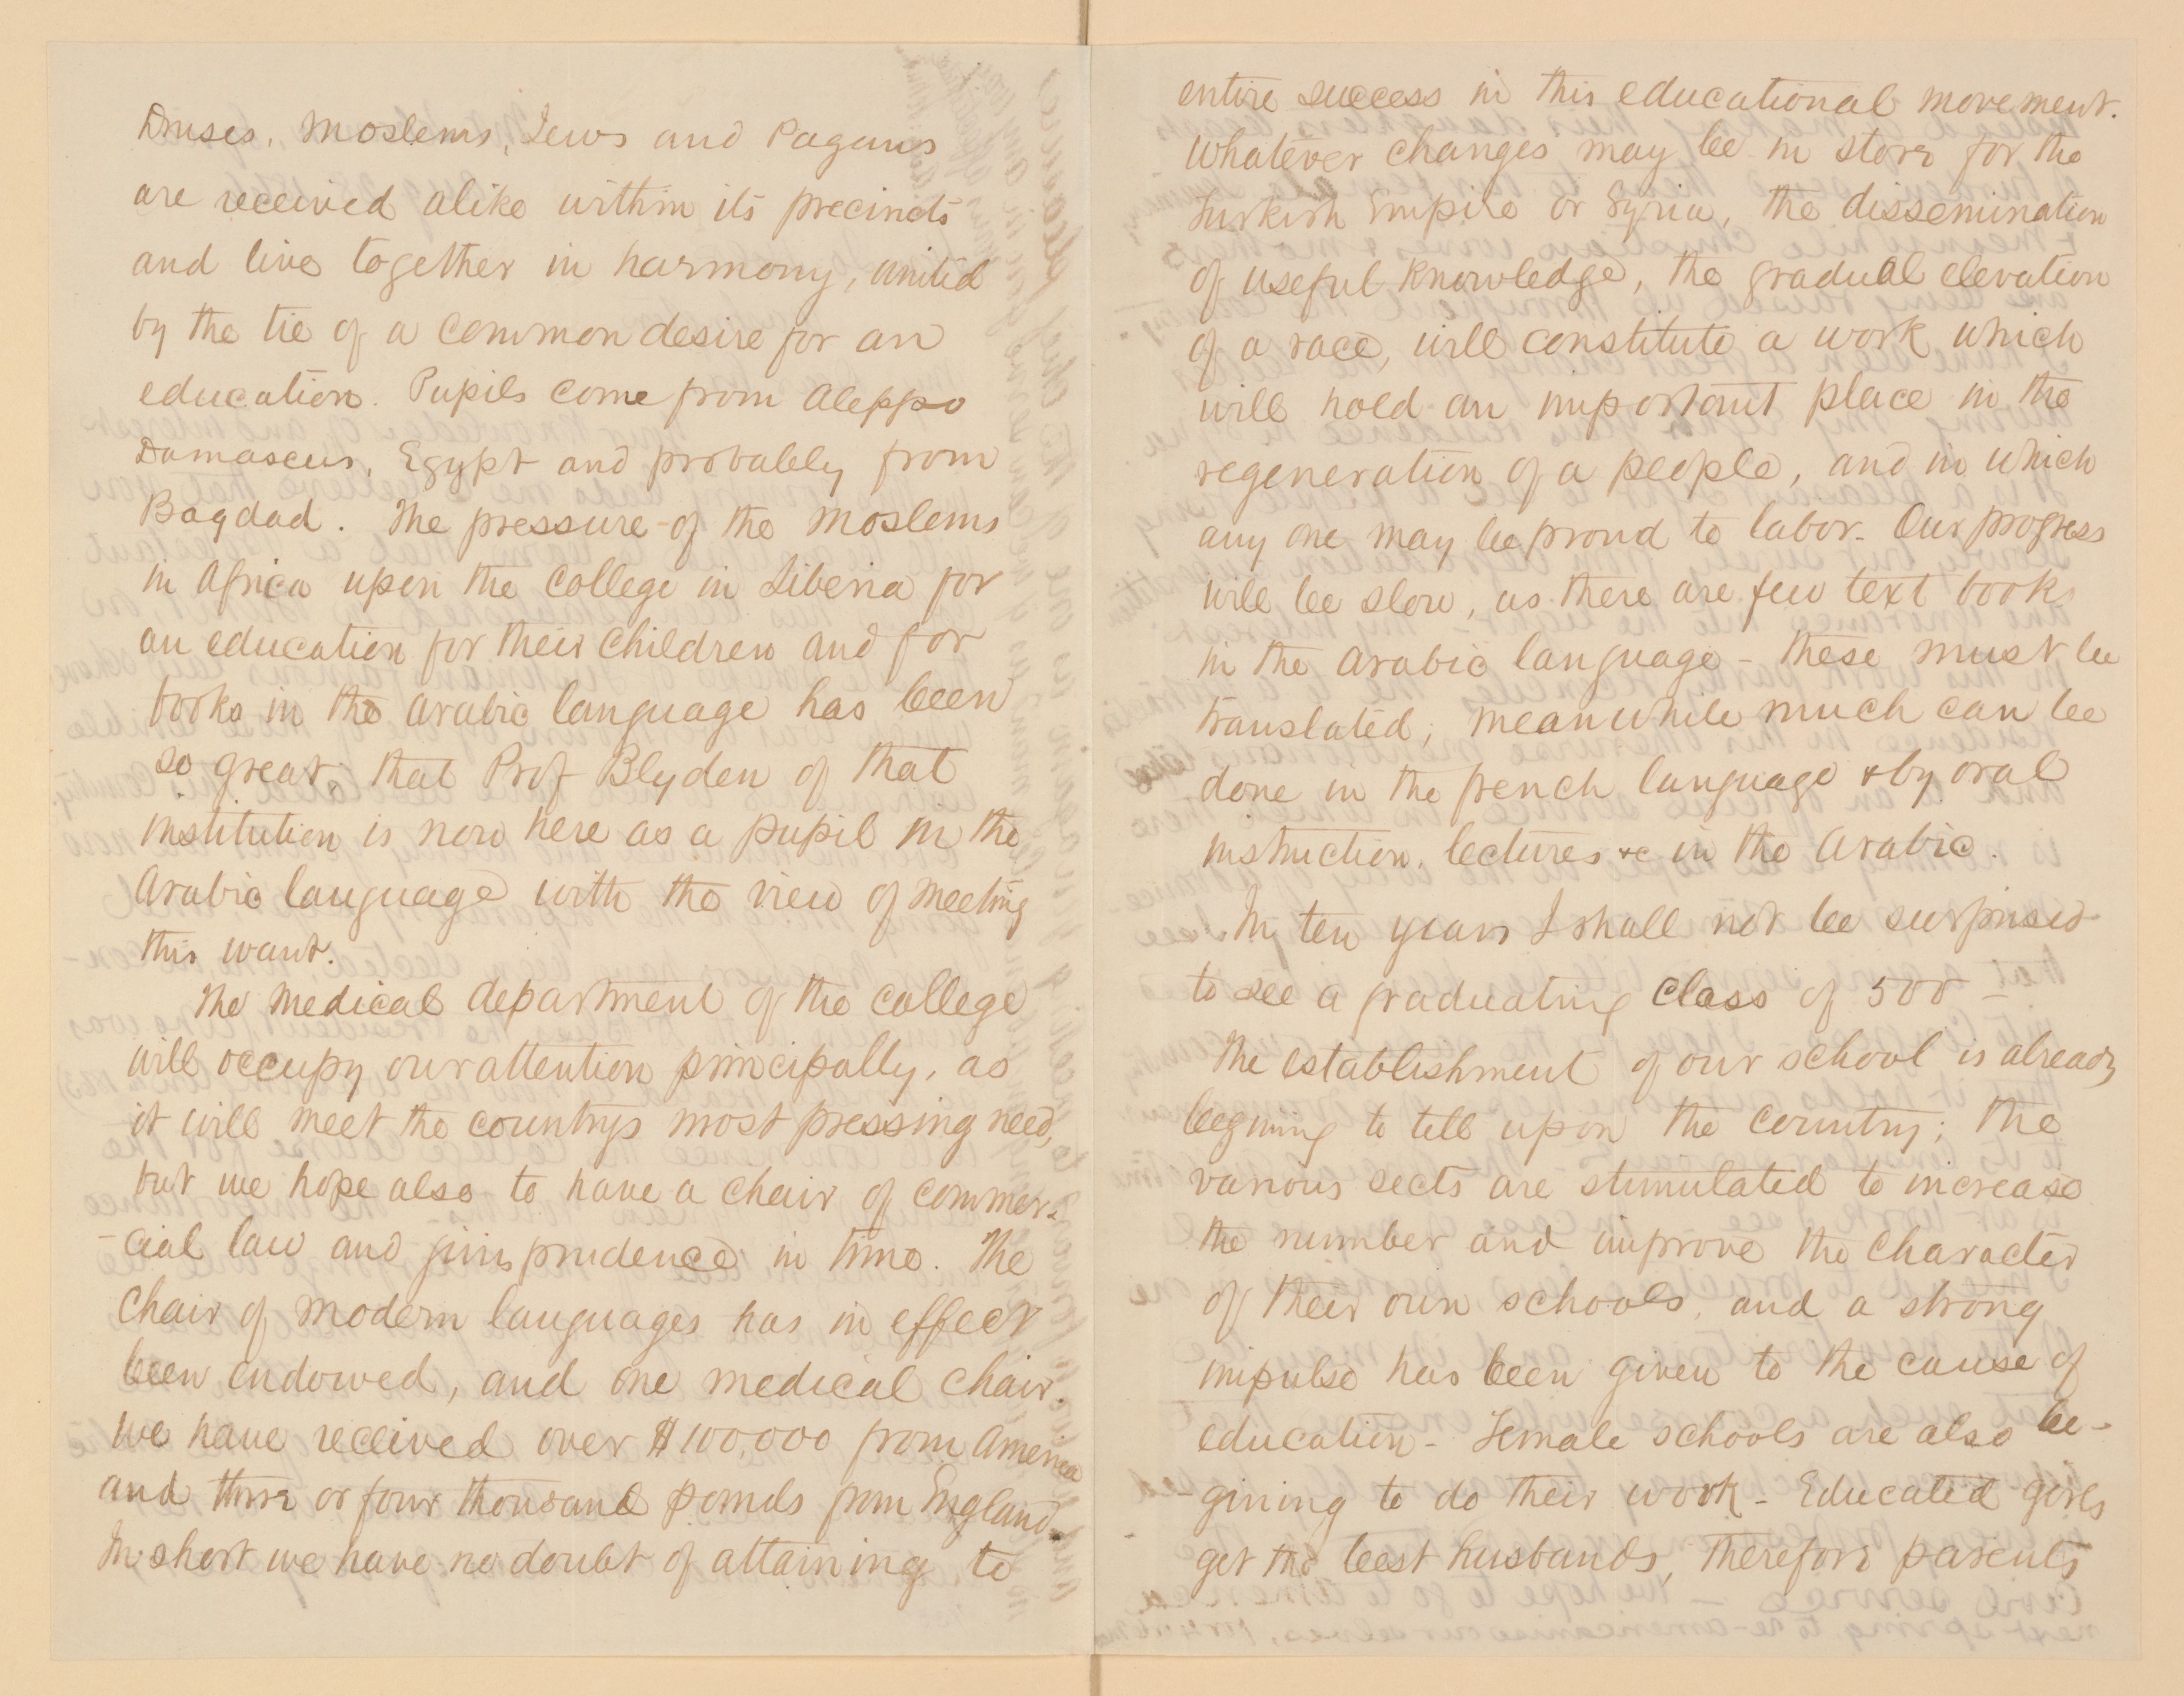 Druses, Moslems, Jews and Pagans
are received alike within its precincts
and live together in harmony, united
by the tie of a common desire for an
education. Pupils come from Aleppo
Damascus, Egypt and probably from
Bagdad. The pressure of the Moslems
in Africa upon the College in Liberia for
an education for their children and for
books in the Arabic language has been
so great, that Prof Blyden of that
institution is now here as a pupil in the
Arabic language with the view of meeting
this want.
The Medical department of the college
will occupy our attention principally, as
it will meet the countrys most pressing need,
but we hope also to have a chair of commer-
-cial law and jurisprudence in time. The
Chair of Modern languages has in effect
been endowed, and one medical chair.
We have received over $100,000 from America
and three or four thousand pounds from England.
In short we have no doubt of attaining to
entire success in this educational movement.
Whatever changes may be in store for the
Turkish Empire or Syria, the dissemination
of useful knowledge, the gradual elevation
of a race, will constitute a work which
will hold an important place in the
regeneration of a people, and in which
any one may be proud to labor. Our progress
will be slow, as there are few text books
in the Arabic language - these must be
translated; meanwhile much can be
done in the french language & by oral
instruction, lectures &c in the Arabic.
In ten years I shall not be surprised
to see a graduating class of 500 -
The establishment of our school is already
begining to tell upon the country; the
various sects are stimulated to increase
the number and improve the character
of their own schools, and a strong
impulse has been given to the cause of
education - Female schools are also be-
-gining to do their work - Educated girls
get the best husbands, therefore parents